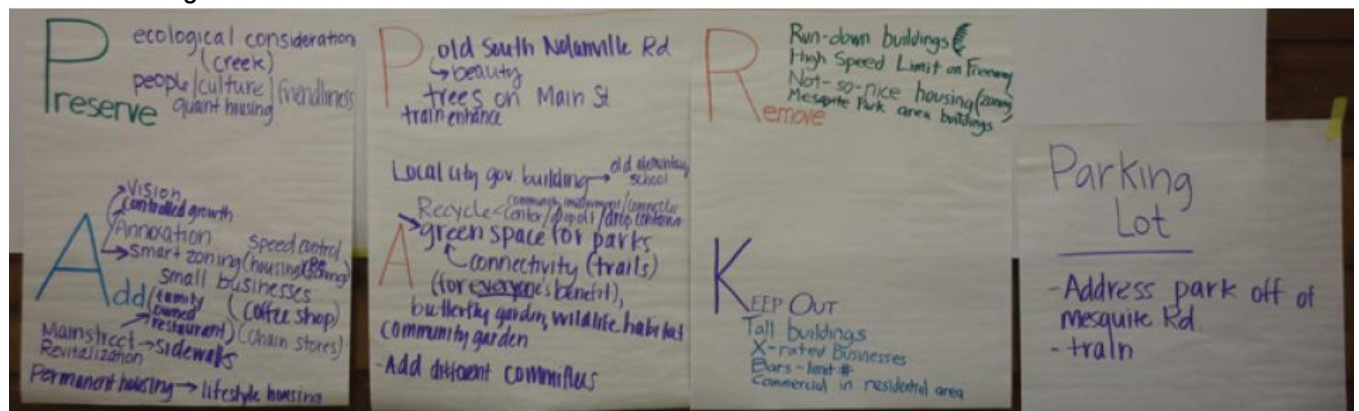 Preserve
ecological consideration
(creek)
people/culture/friendliness
quant housing
Add
Vision
controlled growth
Annoxation
smart zoning (housing
speed control
small businesses
(family owned restaurant)
(coffee shop)
(chain stores)
Mainstreet → sidewalks
Revitalization
Permanent housing → lifestyle housing
P
old South Nolanville Rd
beauty
trees on Main St
train enhance
A
Local city gov building → old elementary school
Recycle
green space for parks
connectivity (trails)
(for everyone's benefit),
butterfly garden, wildlife habitat
community garden
- Add different committees
Remove
Run-down buildings
High Speed Limit on Freeway
Not-so-nice housing (zoning)
Mesquite Park area buildings
KEEP OUT
Tall buildings
X-rated Businesses
Bars - limit #
Commercial in residential area
Parking
Lot
- Address park off of
mesquite Rd.
- train